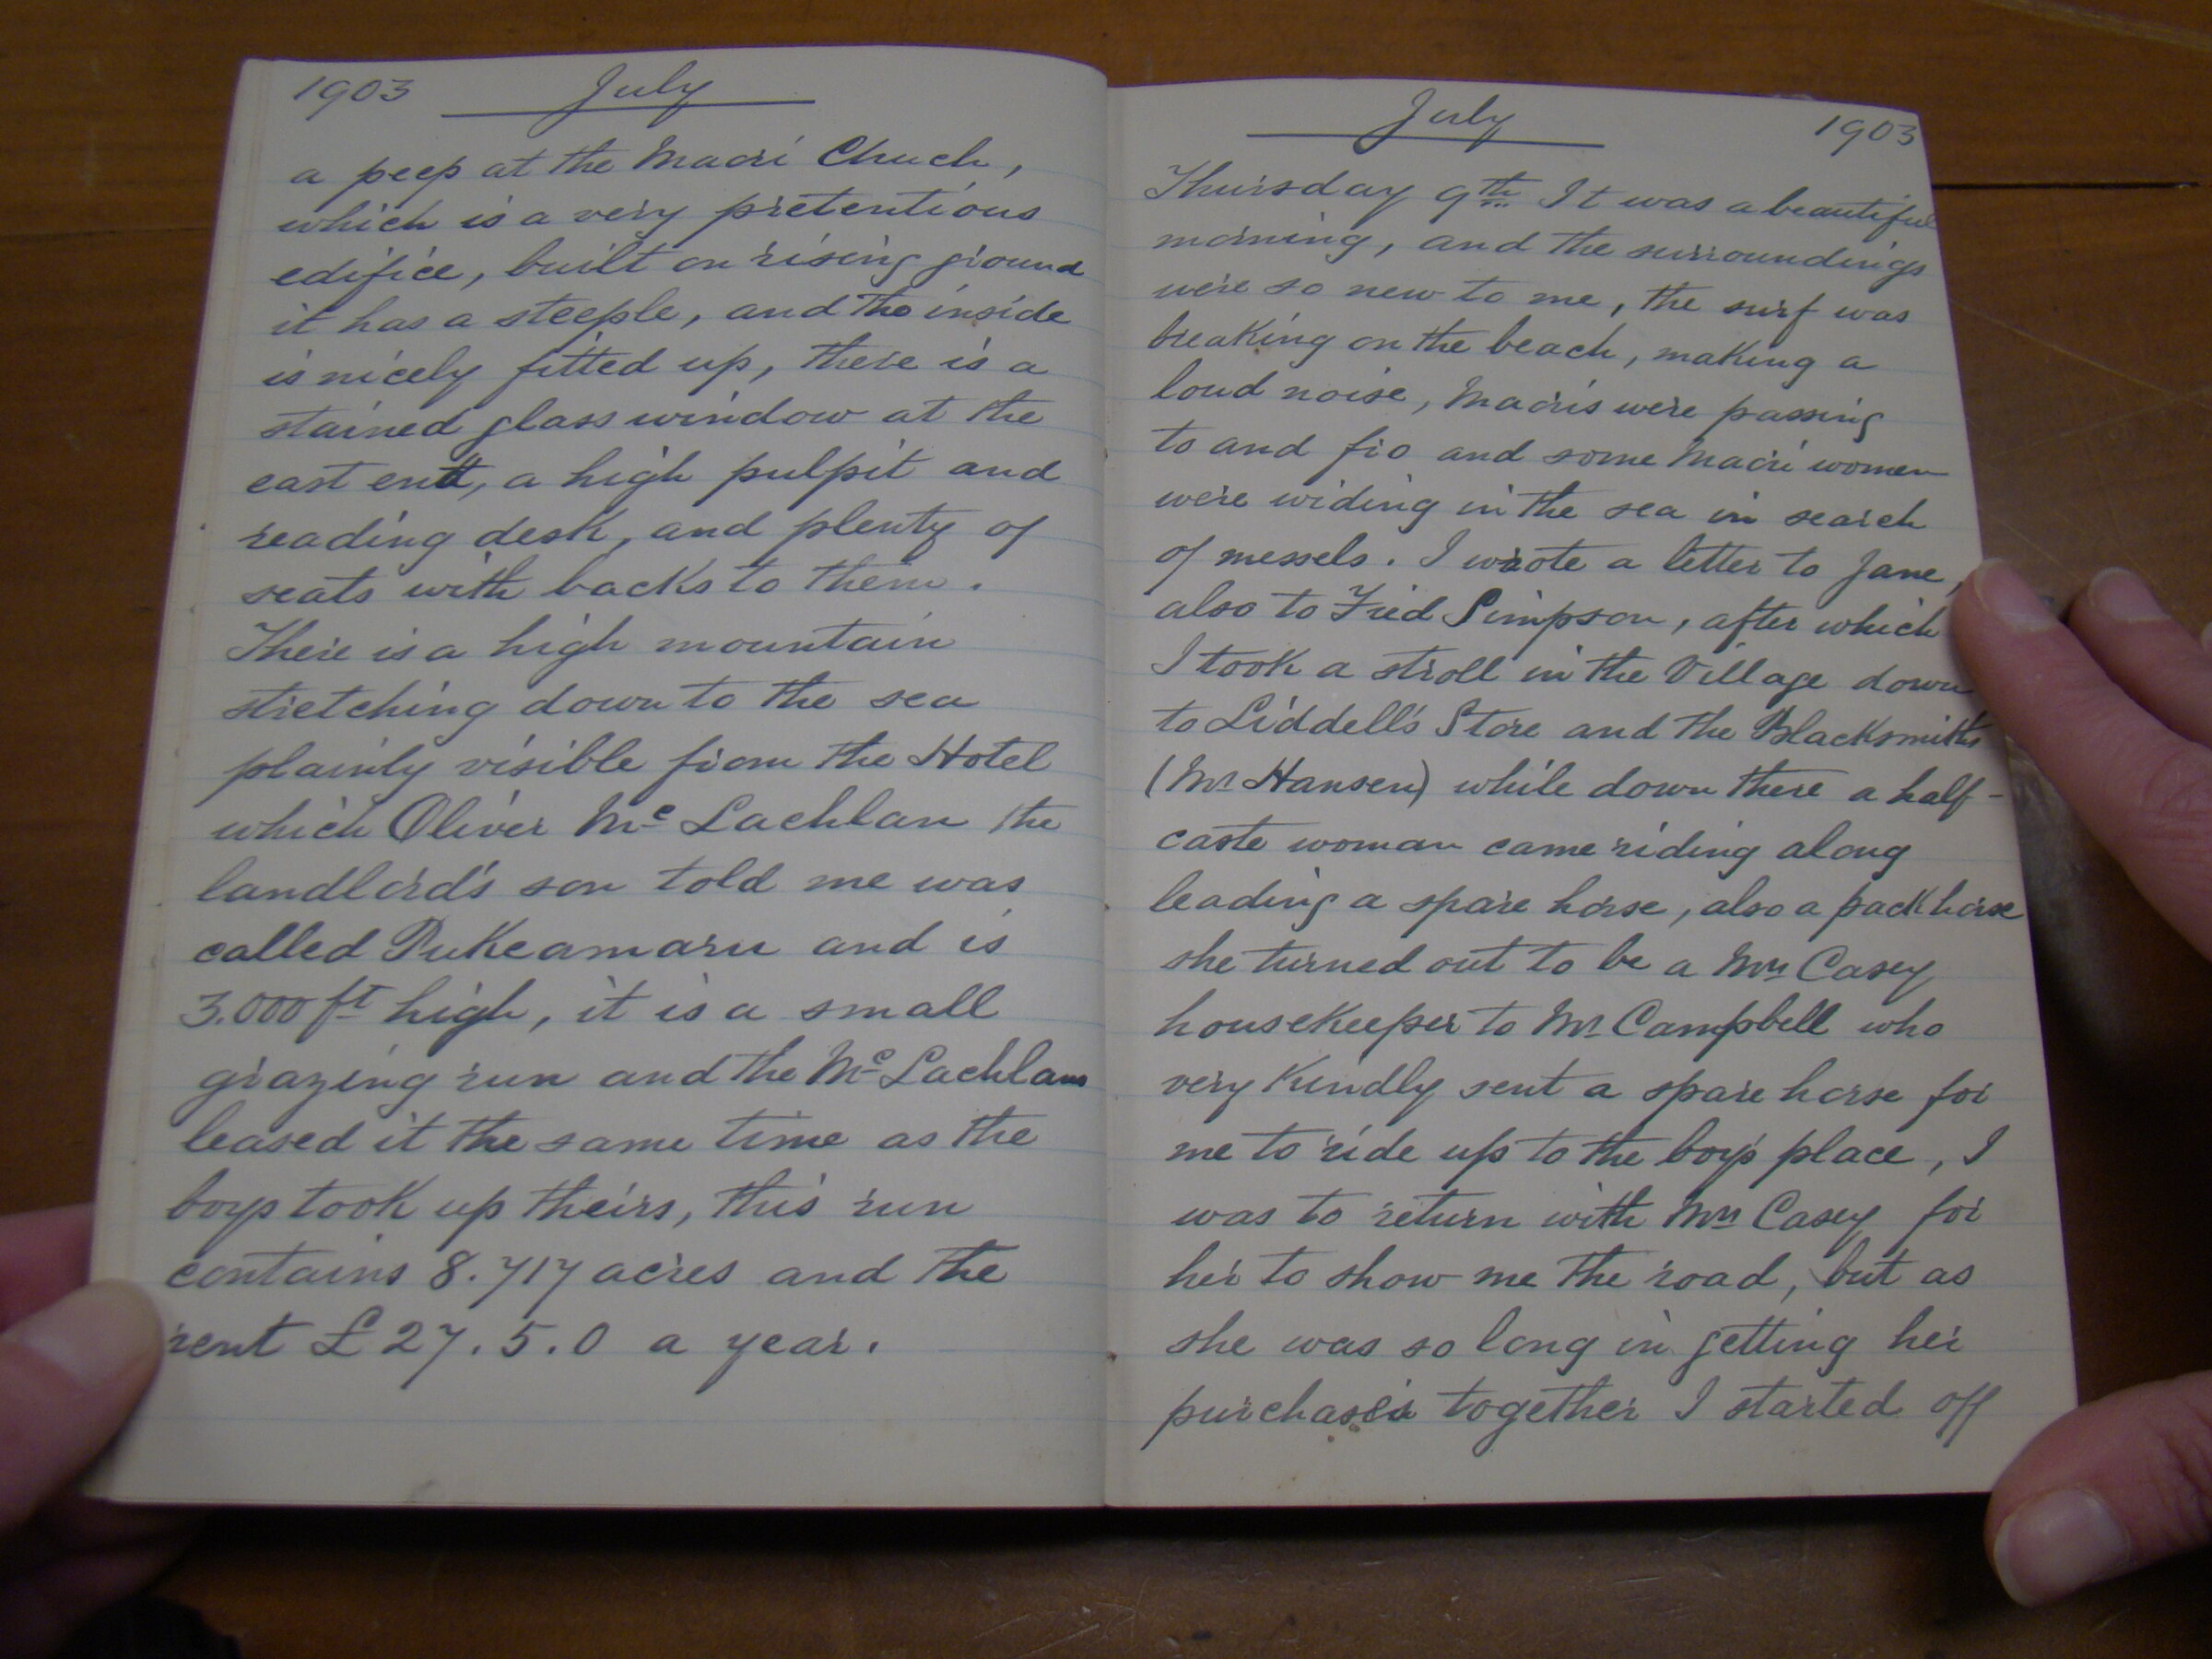 1903 July
a peep at the Maori Chuch,
which is a very pretentious
edifice, built on rising ground
it has a steeple, and the inside
is nicely fitted up, there is a
stained glass window at the
east end, a high pulpit and
reading desk, and plenty of
seats with backs to them.
There is a high mountain
stretching down to the sea
plainly visible from the Hotel
which Oliver Mc Lachlan the
landlord's son told me was
called Pukeamaru and is
3.000 ft high, it is a small
grazing run and the Mc Lachlans
leased it the same time as the
boys took up theirs, this run
contains 8.717 acres and the
rent £27.5.0 a year.
July 1903
Thursday 9th It was a beautiful
morning, and the surroundings
were so new to me, the surf was
breaking on the beach, making a
loud noise, Maoris were passing
to and fro and some Maori women
were widing in the sea in search
of messels. I wrote a letter to Jane,
also to Fred Simpson, after which
I took a stroll in the Village down
to Liddell's Store and the Blacksmiths
(Mr Hansen) while down there a half-
caste woman came riding along
leading a spare horse, also a packhorse
she turned out to be a Mrs Casey
housekeeper to Mr Campbell who
very kindly sent a spare horse for
me to ride up to the boys place, I
was to return with Mrs Casey for
her to show me the road, but as
she was so long in getting her
together I started off